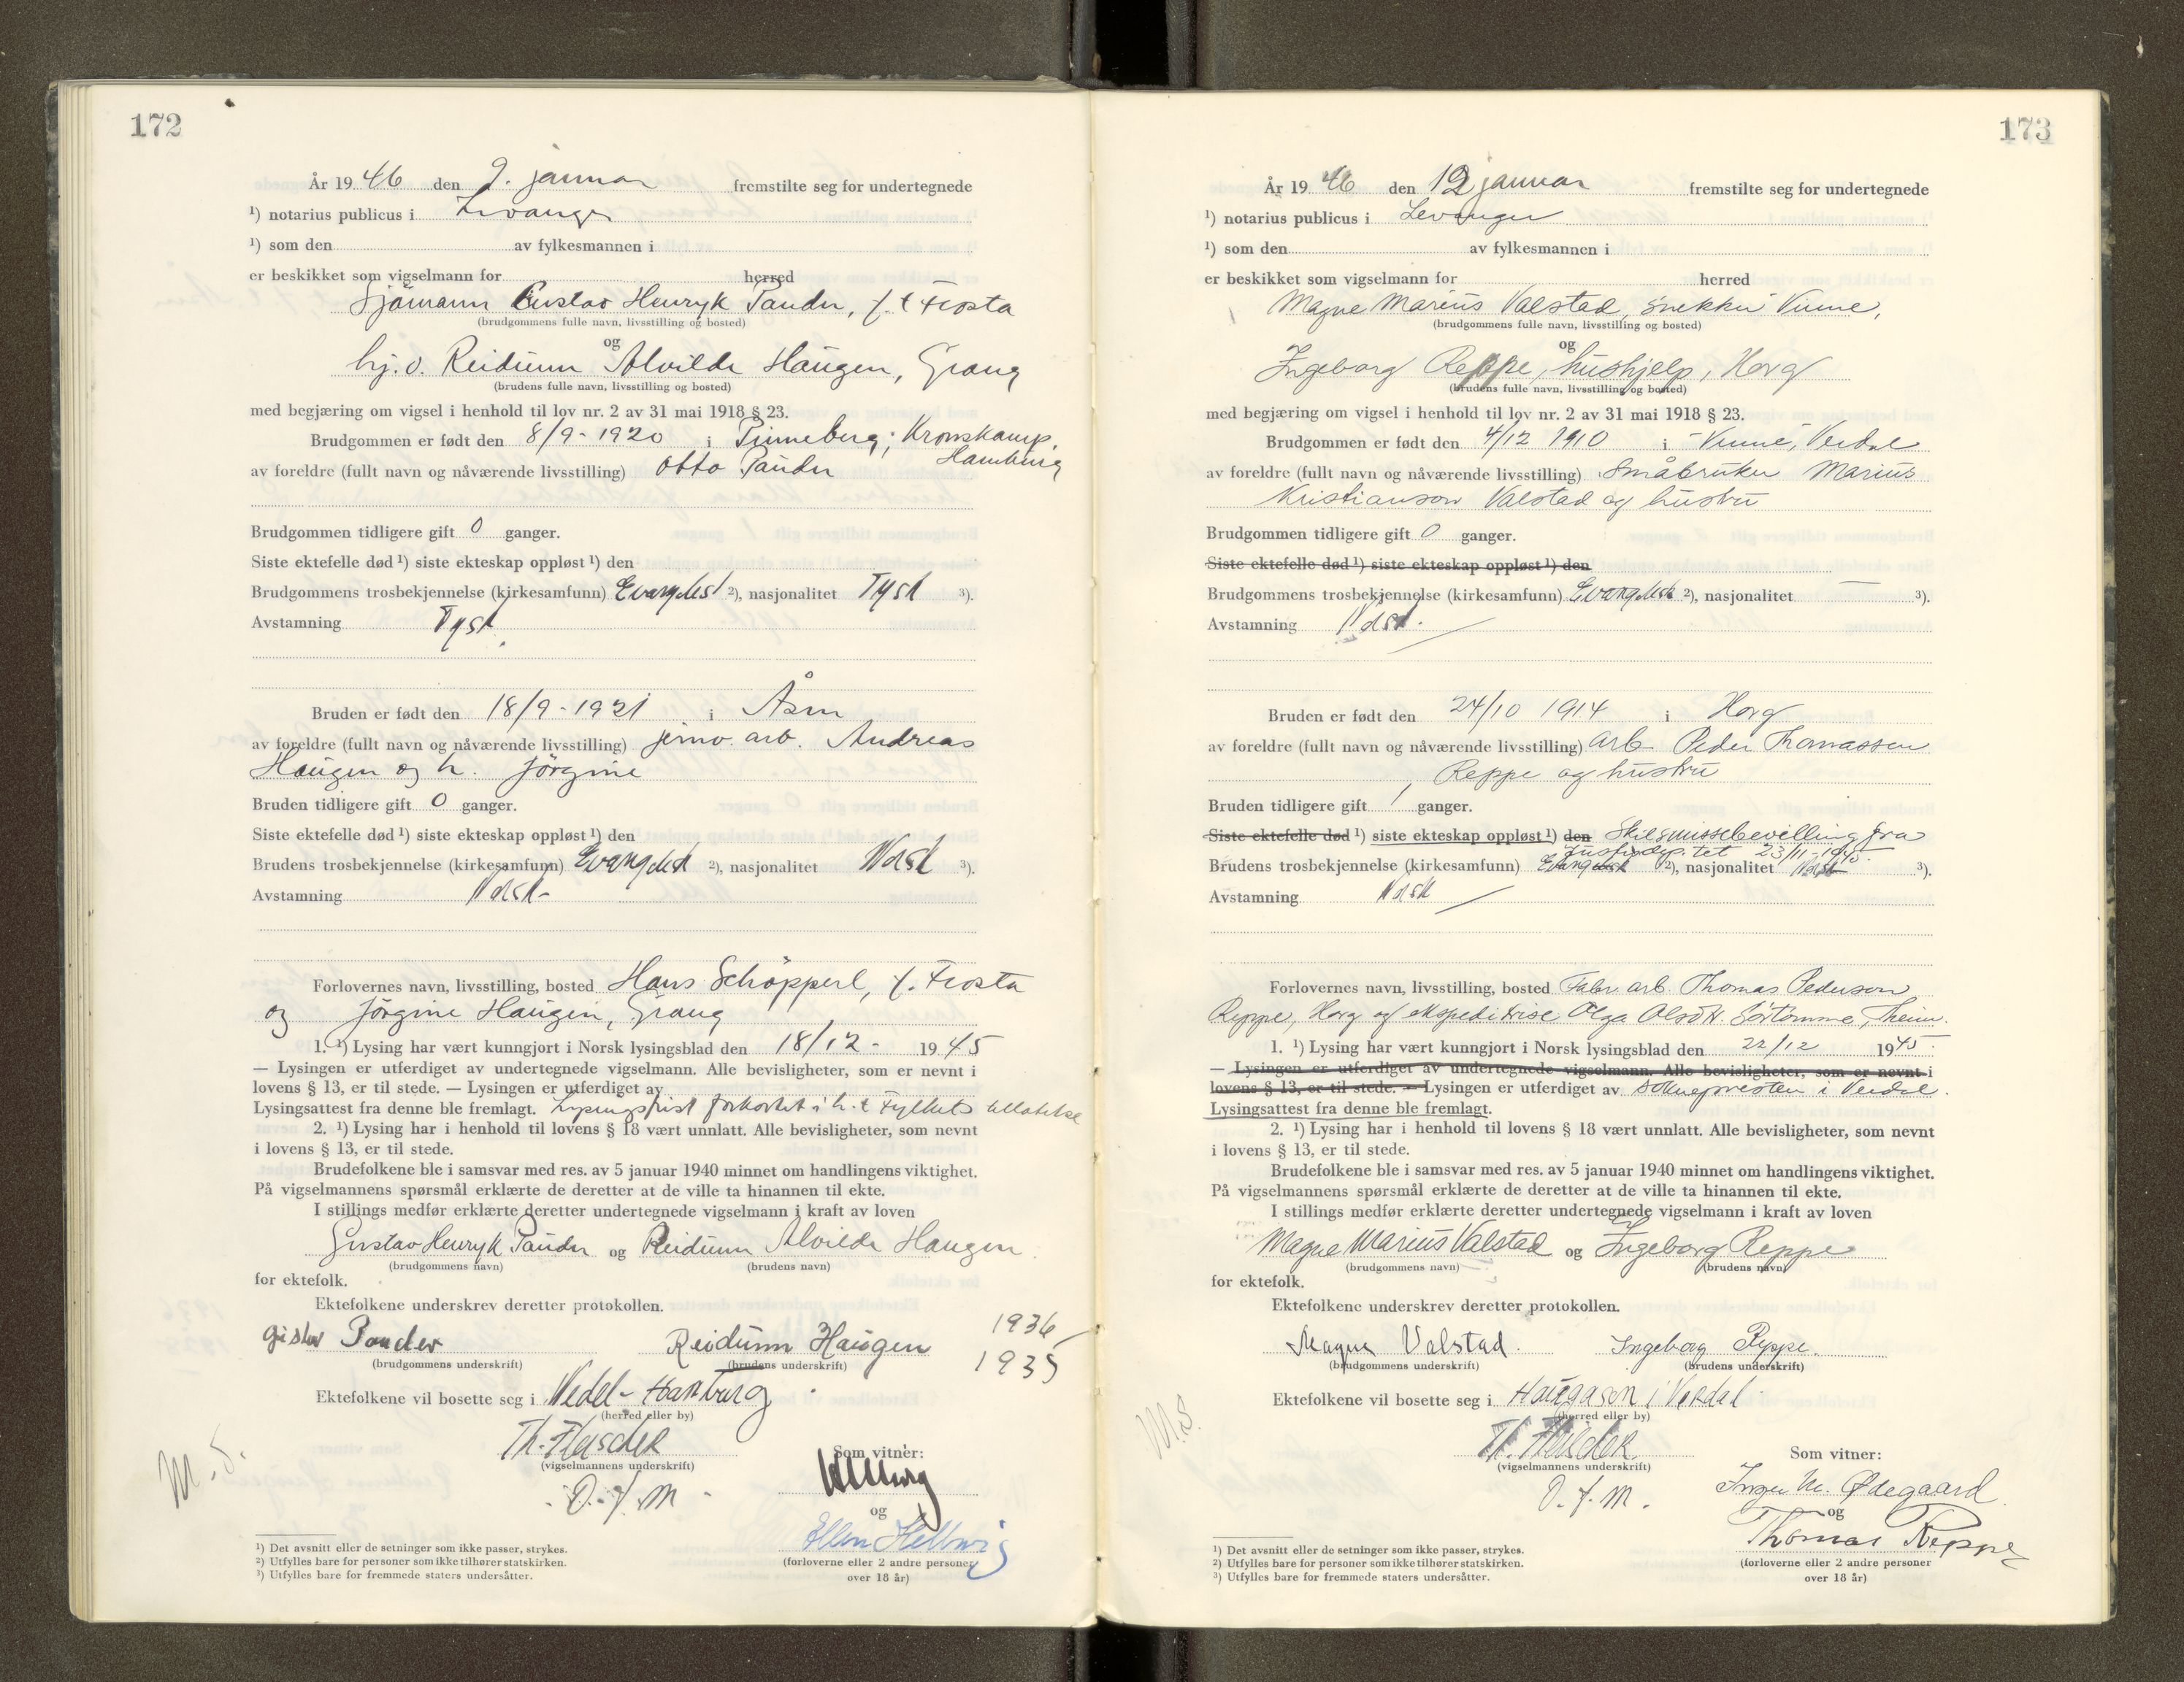 172
År 19 46 den 9. januar fremstilte seg for undertegnede
¹) notarius publicus i Levanger
¹) som den av fylkesmannen i
er beskikket som vigselmann for herred
Sjömann Gustav Henryk Pander, f. t. Frosta
(brudgommens fulle navn, livsstilling og bosted)
og
hj. d. Reidunn Alvilde Haugen, Grong
(brudens fulle navn, livsstilling og bosted)
med begjæring om vigsel i henhold til lov nr. 2 av 31 mai 1918 § 23.
Brudgommen er født den 8/9 - 1920 i Pinneberg; Kronskamp,
Hamburg
av foreldre (fullt navn og nåværende livsstilling) Otto Pander
Brudgommen tidligere gift 0 ganger.
Siste ektefelle død ¹) siste ekteskap oppløst ¹) den
Brudgommens trosbekjennelse (kirkesamfunn) Evangelisk ²), nasjonalitet Tysk ³).
Avstamning Tysk.
Bruden er født den 18/9 - 1921 i Åsen
av foreldre (fullt navn og nåværende livsstilling) jernv. arb. Andreas
Haugen og h. Jörgine
Bruden tidligere gift 0 ganger.
Siste ektefelle død ¹) siste ekteskap oppløst ¹) den
Brudens trosbekjennelse (kirkesamfunn) Evangelisk ²), nasjonalitet Norsk ³).
Avstamning Norsk -
Forlovernes navn, livsstilling, bosted Hans Schöpperl, f. Frosta
og Jörgine Haugen, Grong
1. ¹) Lysing har vært kunngjort i Norsk lysingsblad den 18/12 - 19 45
— Lysingen er utferdiget av undertegnede vigselmann. Alle bevisligheter, som er nevnt i
lovens § 13, er til stede. — Lysingen er utferdiget av
Lysingsattest fra denne ble fremlagt. Lysingsfrist forkortet i h. t. Fylkets tillatelse
2. ¹) Lysing har i henhold til lovens § 18 vært unnlatt. Alle bevisligheter, som nevnt
i lovens § 13, er til stede.
Brudefolkene ble i samsvar med res. av 5 januar 1940 minnet om handlingens viktighet.
På vigselmannens spørsmål erklærte de deretter at de ville ta hinannen til ekte.
I stillings medfør erklærte deretter undertegnede vigselmann i kraft av loven
Gustav Henryk Pander og Reidunn Alvilde Haugen
(brudgommens navn) (brudens navn)
for ektefolk.
Ektefolkene underskrev deretter protokollen.
Gustav Pander Reidunn Haugen 1936
(brudgommens underskrift) (brudens underskrift) 1935
Ektefolkene vil bosette seg i Wedel - Hamburg
(herred eller by)
Th. Fleischer
(vigselmannens underskrift)
Som vitner:
M. S.
D. f. M.
og
Ellen Hellwig
(forloverne eller 2 andre personer
over 18 år)
¹) Det avsnitt eller de setninger som ikke passer, strykes.
²) Utfylles bare for personer som ikke tilhører statskirken.
³) Utfylles bare for fremmede staters undersåtter.
173
År 19 46 den 12 januar fremstilte seg for undertegnede
¹) notarius publicus i Levanger
¹) som den av fylkesmannen i
er beskikket som vigselmann for herred
Magne Marius Valstad, snekker Vinne,
(brudgommens fulle navn, livsstilling og bosted)
og
Ingeborg Reppe, hushjelp, Horg
(brudens fulle navn, livsstilling og bosted)
med begjæring om vigsel i henhold til lov nr. 2 av 31 mai 1918 § 23.
Brudgommen er født den 4/12 1910 i Vinne, Verdal
av foreldre (fullt navn og nåværende livsstilling) Småbruker Marius
Kristianson Valstad og hustru
Brudgommen tidligere gift 0 ganger.
Siste ektefelle død ¹) siste ekteskap oppløst ¹) den
Brudgommens trosbekjennelse (kirkesamfunn) Evangelisk ²), nasjonalitet ³).
Avstamning Norsk.
Bruden er født den 24/10 1914 i Horg
av foreldre (fullt navn og nåværende livsstilling) Arb. Peder Thomassen
Reppe og hustru
Bruden tidligere gift 1 ganger.
Siste ektefelle død ¹) siste ekteskap oppløst ¹) den Skilsmissebevilling fra
Justisdep. tet 23/11 - 1945.
Brudens trosbekjennelse (kirkesamfunn) Evangelisk ²), nasjonalitet Norsk ³).
Avstamning Norsk
Forlovernes navn, livsstilling, bosted Fabr. arb. Thomas Pederson
Reppe, Horg og ekspeditrise Olga Alsdtt. Sörtömme, Theim.
1. ¹) Lysing har vært kunngjort i Norsk lysingsblad den 22/12 19 45.
— Lysingen er utferdiget av undertegnede vigselmann. Alle bevisligheter, som er nevnt i
lovens § 13, er til stede. — Lysingen er utferdiget av sokneprresten i Verdal.
Lysingsattest fra denne ble fremlagt.
2. ¹) Lysing har i henhold til lovens § 18 vært unnlatt. Alle bevisligheter, som nevnt
i lovens § 13, er til stede.
Brudefolkene ble i samsvar med res. av 5 januar 1940 minnet om handlingens viktighet.
På vigselmannens spørsmål erklærte de deretter at de ville ta hinannen til ekte.
I stillings medfør erklærte deretter undertegnede vigselmann i kraft av loven
Magne Marius Valstad og Ingeborg Reppe
(brudgommens navn) (brudens navn)
for ektefolk.
Ektefolkene underskrev deretter protokollen.
Magne Valstad. Ingeborg Reppe.
(brudgommens underskrift) (brudens underskrift)
Ektefolkene vil bosette seg i Haugåsen i Verdal
(herred eller by)
M. S.
Th. Fleischer
(vigselmannens underskrift)
Som vitner:
D. f. M.
Inger M. Ødegaard
og
Thomas Reppe
(forloverne eller 2 andre personer
over 18 år)
¹) Det avsnitt eller de setninger som ikke passer, strykes.
²) Utfylles bare for personer som ikke tilhører statskirken.
³) Utfylles bare for fremmede staters undersåtter.